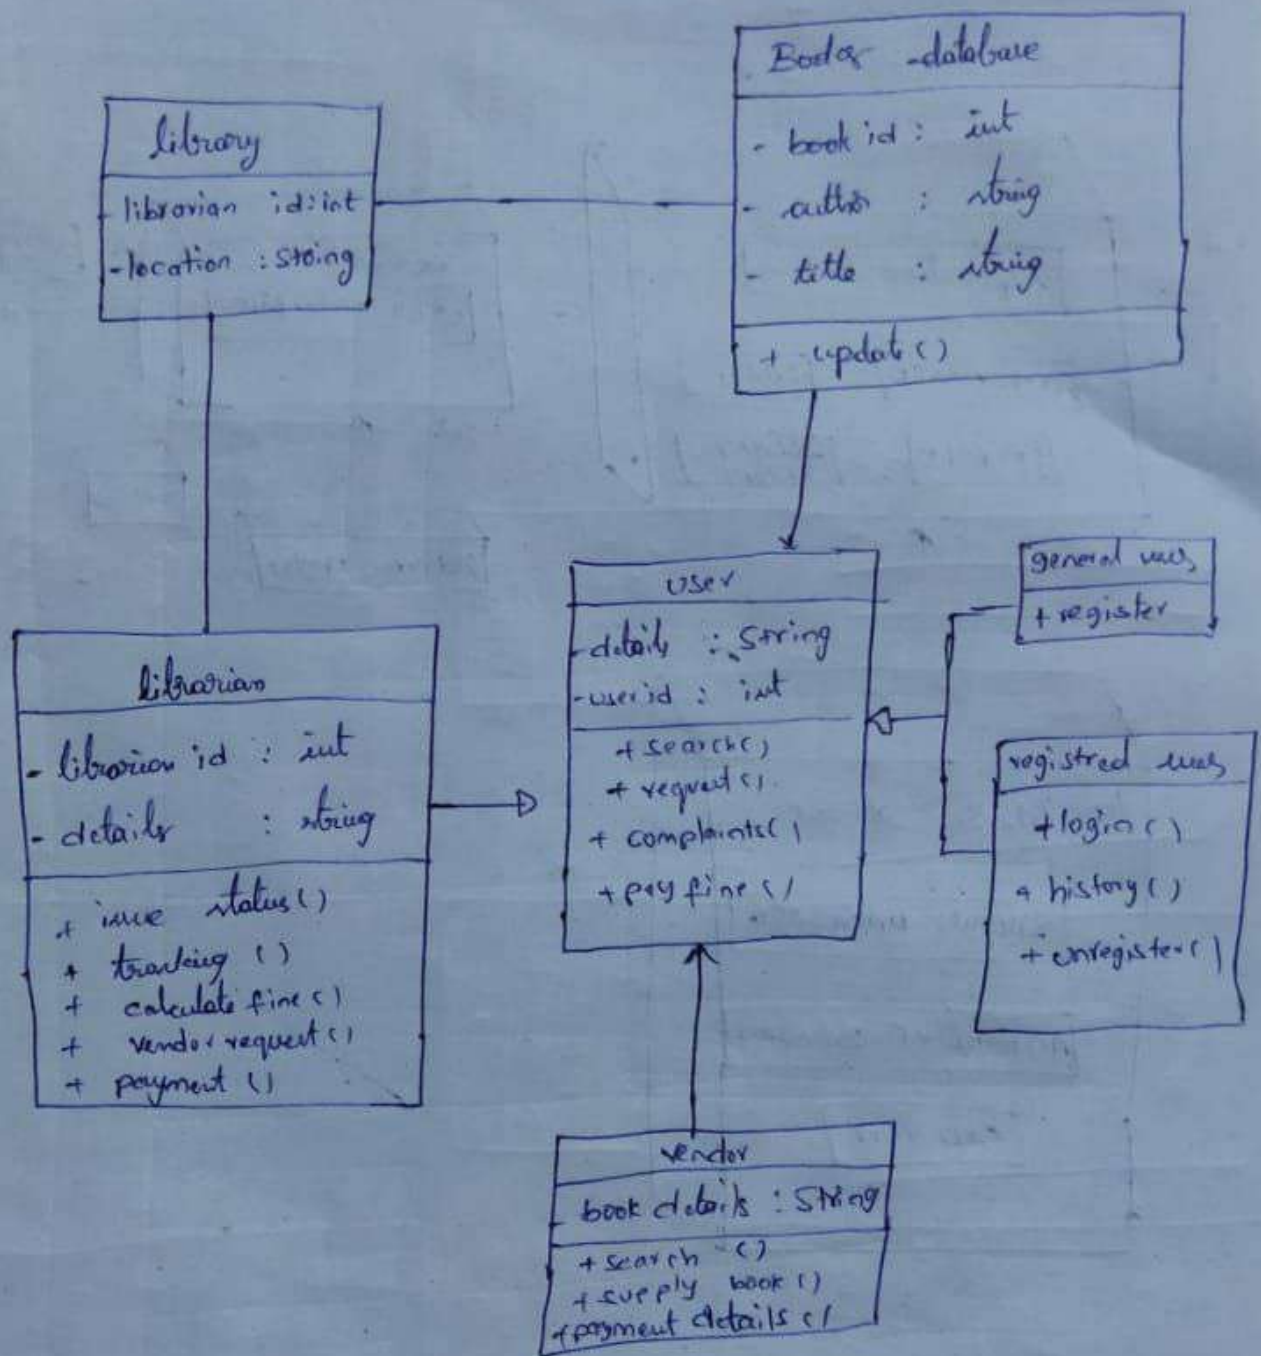 library
- librarian id: int
- location : String
-database
- book id : int
- author : string
- title : string
+ update()
librarian
- librarian id : int
- details : string
+ issue status()
+ tracking ()
+ calculate fine ()
+ vendor request()
+ payment ()
user
- details : String
- user id : int
+ search()
+ request()
+ complaints()
+ pay fine ()
general
+ register
registred
+ login ()
+ history()
+ unregister()
vendor
book details : String
+ search ()
+ supply book ()
+ payment details ()